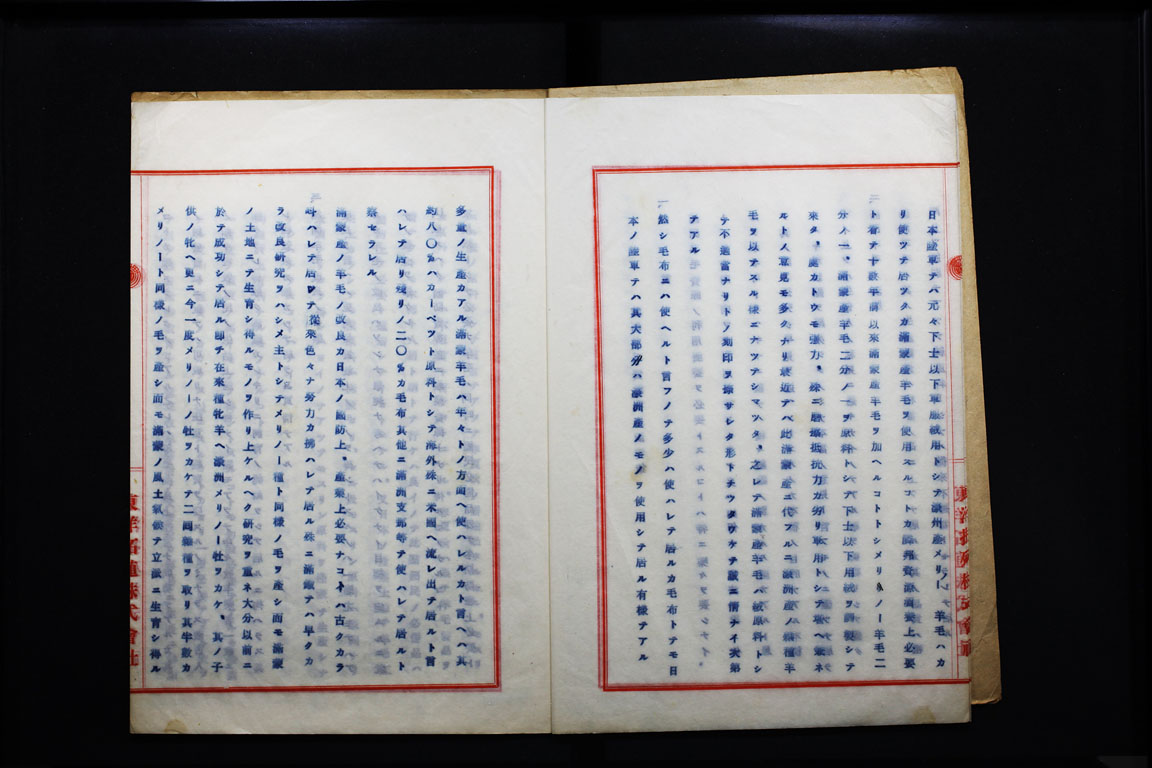 日本陸軍テハ元々下士以下軍服絨用トシテ濠州産メリノー羊毛ハカ
リ使ツテ居ツタカ滿蒙産羊毛ヲ使用スルコトカ 資源 上必要
ト看テ十數年前以來滿蒙産羊毛ヲ加ヘルコトトシメリノー羊毛二
分ノ一、滿蒙産羊毛二分ノ一ヲ原料トシテ下士以下用絨ヲ調製シテ
來タ、處カトウモ強力、殊ニ 抵抗力カ劣リ軍用トシテ 兼ネ
ルト人意見モ多クナリ最近テハ此滿蒙産ニ代フルニ濠洲産ノ 種羊
毛ヲ以テスル樣ニナツテシマツタ、之レテ滿蒙産羊毛ハ絨原料トシ
テ不適當ナリトノ刻印ヲ サレタ形トナツタワケテ誠ニ情ナイ次第
テアル
一、然シ毛布ニハ使ヘルト言フノテ多少ハ使ハレテ居ルカ毛布トテモ日
本ノ陸軍テハ其大部分ハ濠洲産ノモノヲ使用シテ居ル有樣テアル
多量ノ生産カアル滿蒙羊毛ハ年々トノ方面ヘ使ハレルカト言ヘハ其
約八〇%ハカーペツト原料トシテ海外殊ニ米國ヘ流レ出テ居ルト言
ハレテ居リ殘リノ二〇%カ毛布其他ニ滿洲支那等テ使ハレテ居ルト
察セラレル
滿蒙産ノ羊毛ノ改良カ日本ノ國防上、産業上必要ナコトハ古クカラ
叫ハレテ居リテ從來色々ナ努力カ拂ハレテ居ル殊ニ滿鐵テハ早クカ
ラ改良研究ヲハシメ主トシテメリノー種ト同樣ノ毛ヲ産シ而モ滿蒙
ノ土地ニテ生育シ得ルモノヲ作リ上ケルヘク研究ヲ重ネ大分以前ニ
於テ成功シテ居ル卽チ在來種牝羊ヘ濠洲メリノー牡ヲカケ、其ノ子
供ノ牝ヘ更ニ今一度メリノーノ牡ヲカケテ二回雜種ヲ取リ其半數カ
メリノート同樣ノ毛ヲ産シ而モ滿蒙ノ風土氣候テ立派ニ生育シ得ル